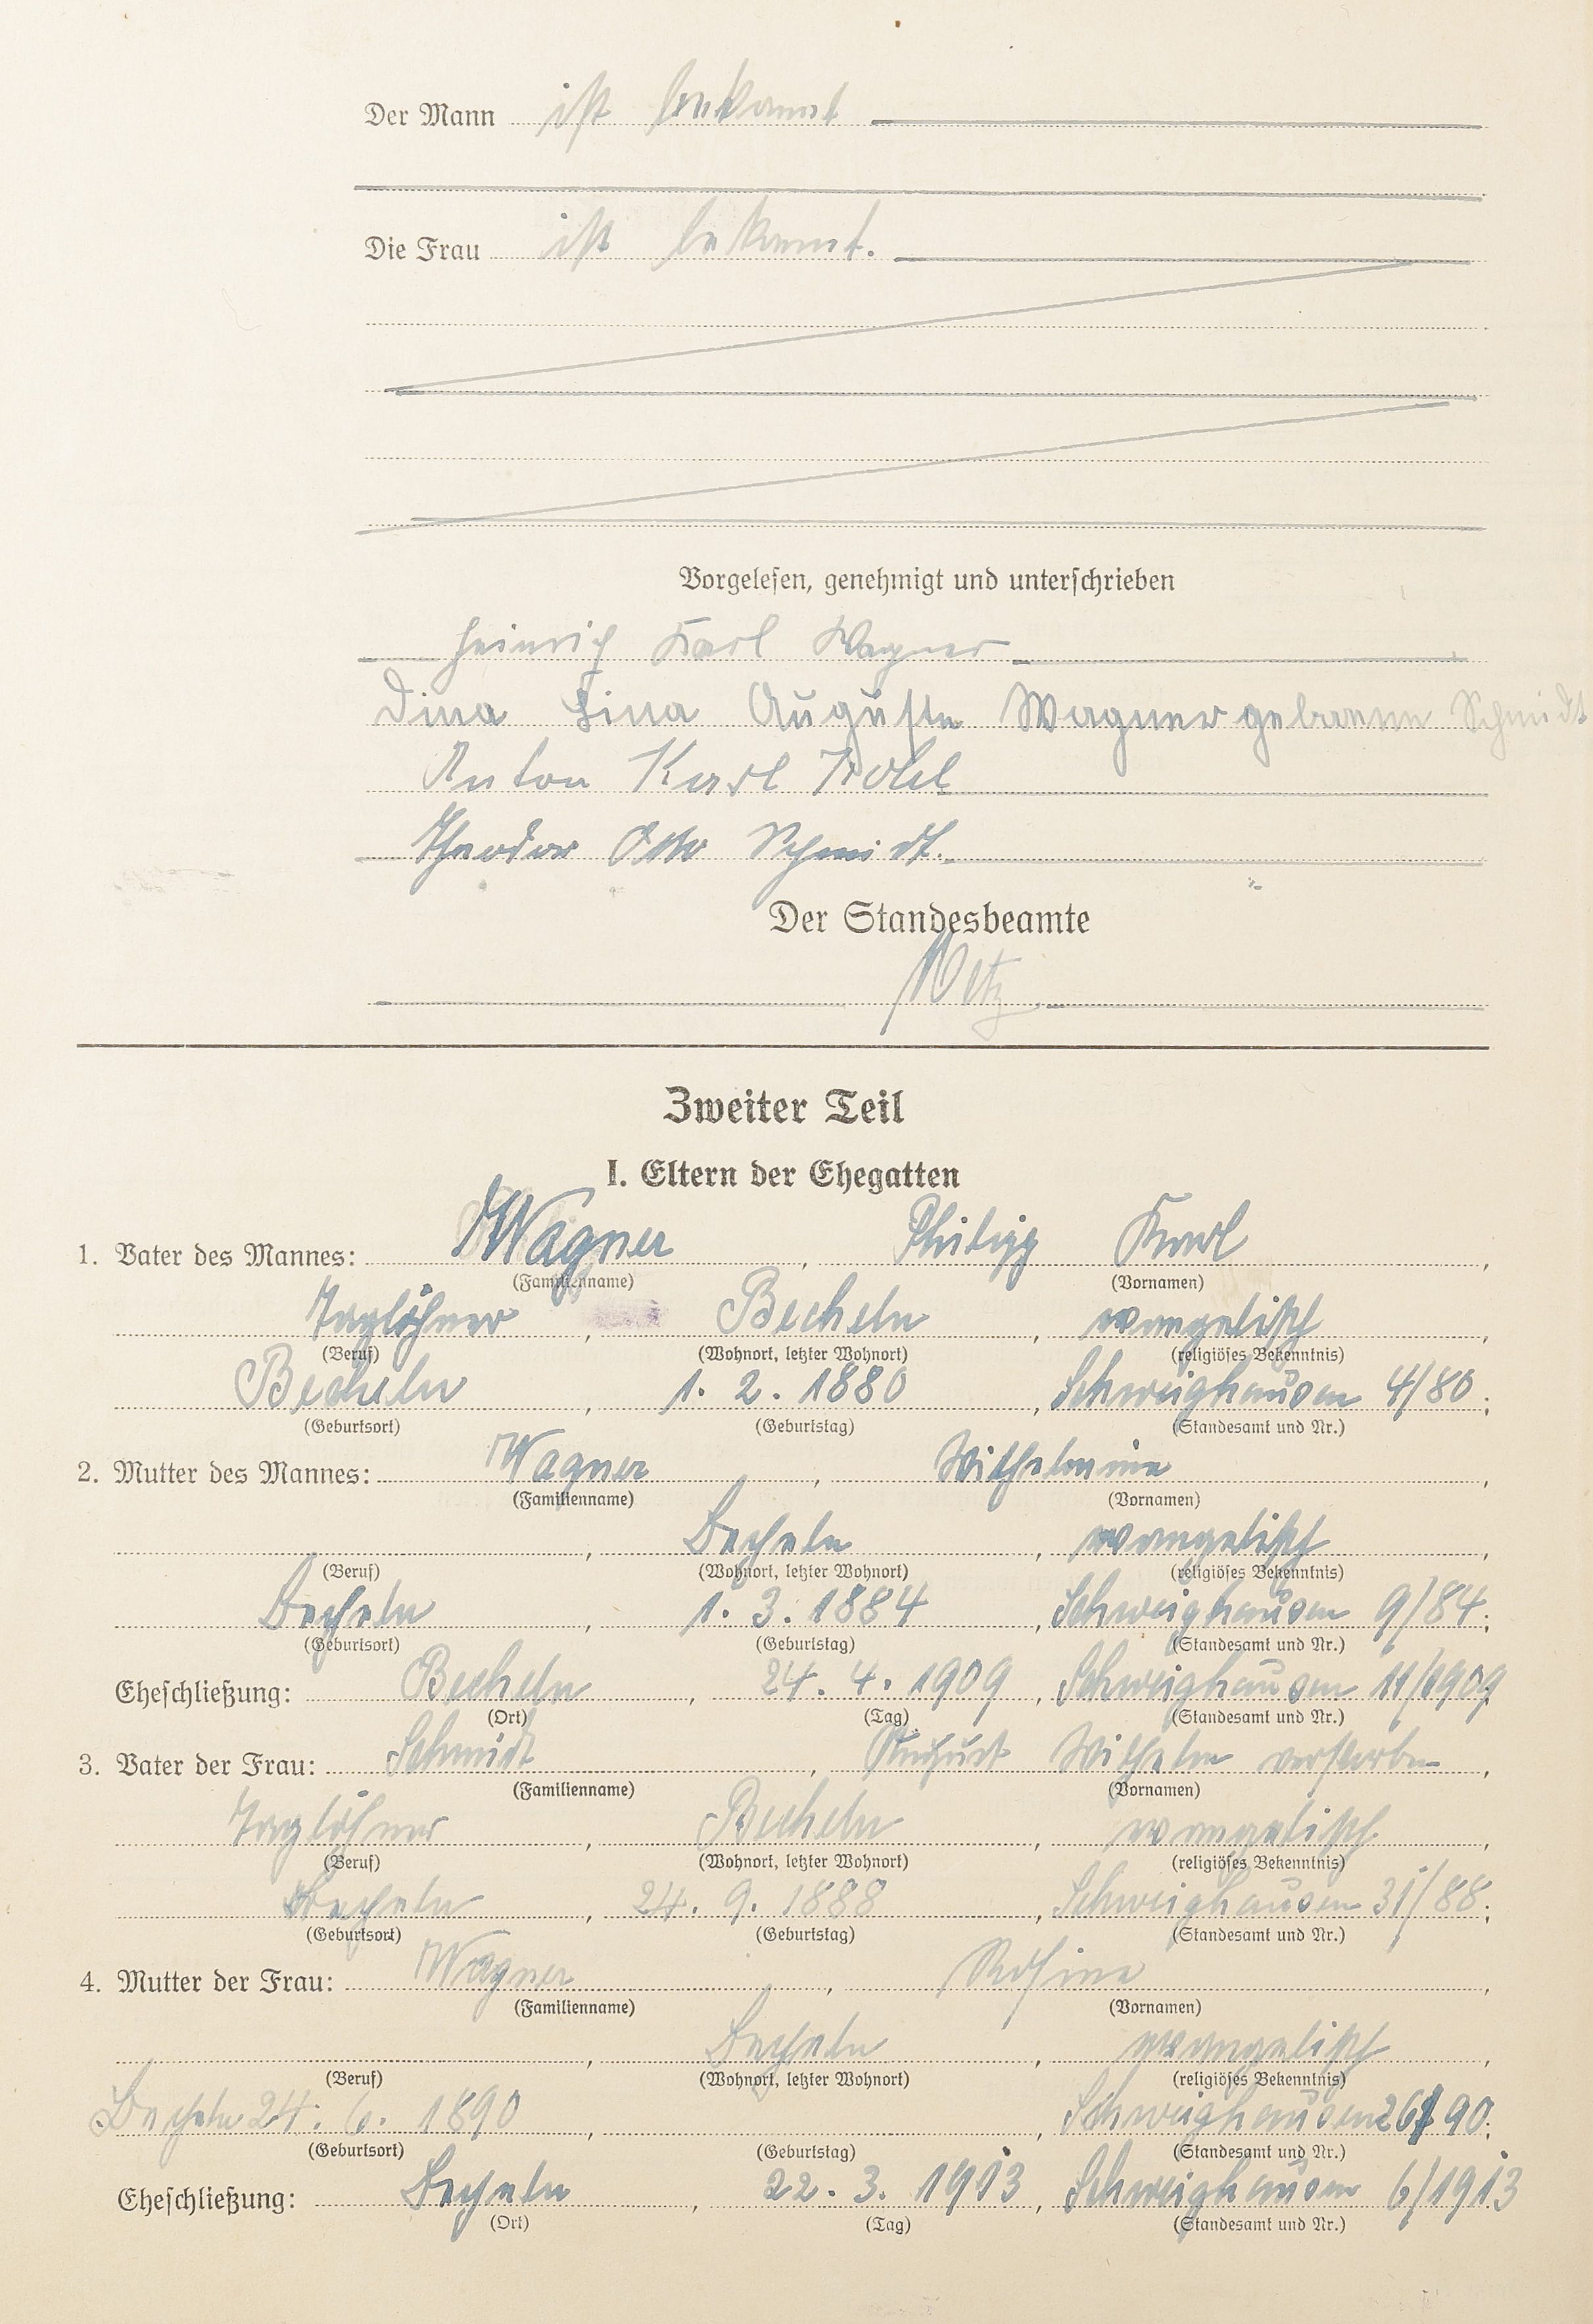 Der Mann ist bekannt
Die Frau ist bekannt.
Vorgelesen, genehmigt und unterschrieben
Heinrich Karl Wagner
Dina Lina Auguste Wagner geborene Schmidt
Anton Karl
Theodor Otto Schmidt.
Der Standesbeamte
Metz
Zweiter Teil
I. Eltern der Ehegatten
1. Vater des Mannes: Wagner, Philipp Karl,
(Familienname) (Vornamen)
Taglöhner, Becheln, evangelisch,
(Beruf) (Wohnort, letzter Wohnort) (religiöses Bekenntnis)
Becheln, 1. 2. 1880, Schweighausen 4/80;
(Geburtsort) (Geburtstag) (Standesamt und Nr.)
2. Mutter des Mannes: Wagner, Wilhelmine,
(Familienname) (Vornamen)
, Becheln, evangelisch,
(Beruf) (Wohnort, letzter Wohnort) (religiöses Bekenntnis)
Becheln, 1. 3. 1884, Schweighausen 9/84;
(Geburtsort) (Geburtstag) (Standesamt und Nr.)
Eheschließung: Becheln, 24. 4. 1909, Schweighausen 11/1909
(Ort) (Tag) (Standesamt und Nr.)
3. Vater der Frau: Schmidt, August Wilhelm verstorben,
(Familienname) (Vornamen)
Taglöhner, Becheln, evangelisch,
(Beruf) (Wohnort, letzter Wohnort) (religiöses Bekenntnis)
Becheln, 24. 9. 1888, Schweighausen 31/88;
(Geburtsort) (Geburtstag) (Standesamt und Nr.)
4. Mutter der Frau: Wagner, Rosine,
(Familienname) (Vornamen)
, Becheln, evangelisch,
(Beruf) (Wohnort, letzter Wohnort) (religiöses Bekenntnis)
Becheln 24. 6. 1890, , Schweighausen 26/90;
(Geburtsort) (Geburtstag) (Standesamt und Nr.)
Eheschließung: Becheln, 22. 3. 1913, Schweighausen 6/1913
(Ort) (Tag) (Standesamt und Nr.)